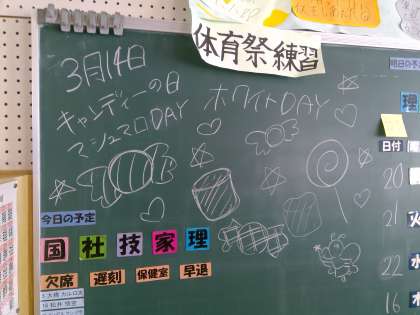 体育祭練習
3月14日
キャンディーの日
マシュマロDAY
ホワイトDAY
明日の予
理
日付
20
21 火
22 水
16
今日の予定
国 社 技 家 理
欠席 遅刻 保健室 早退